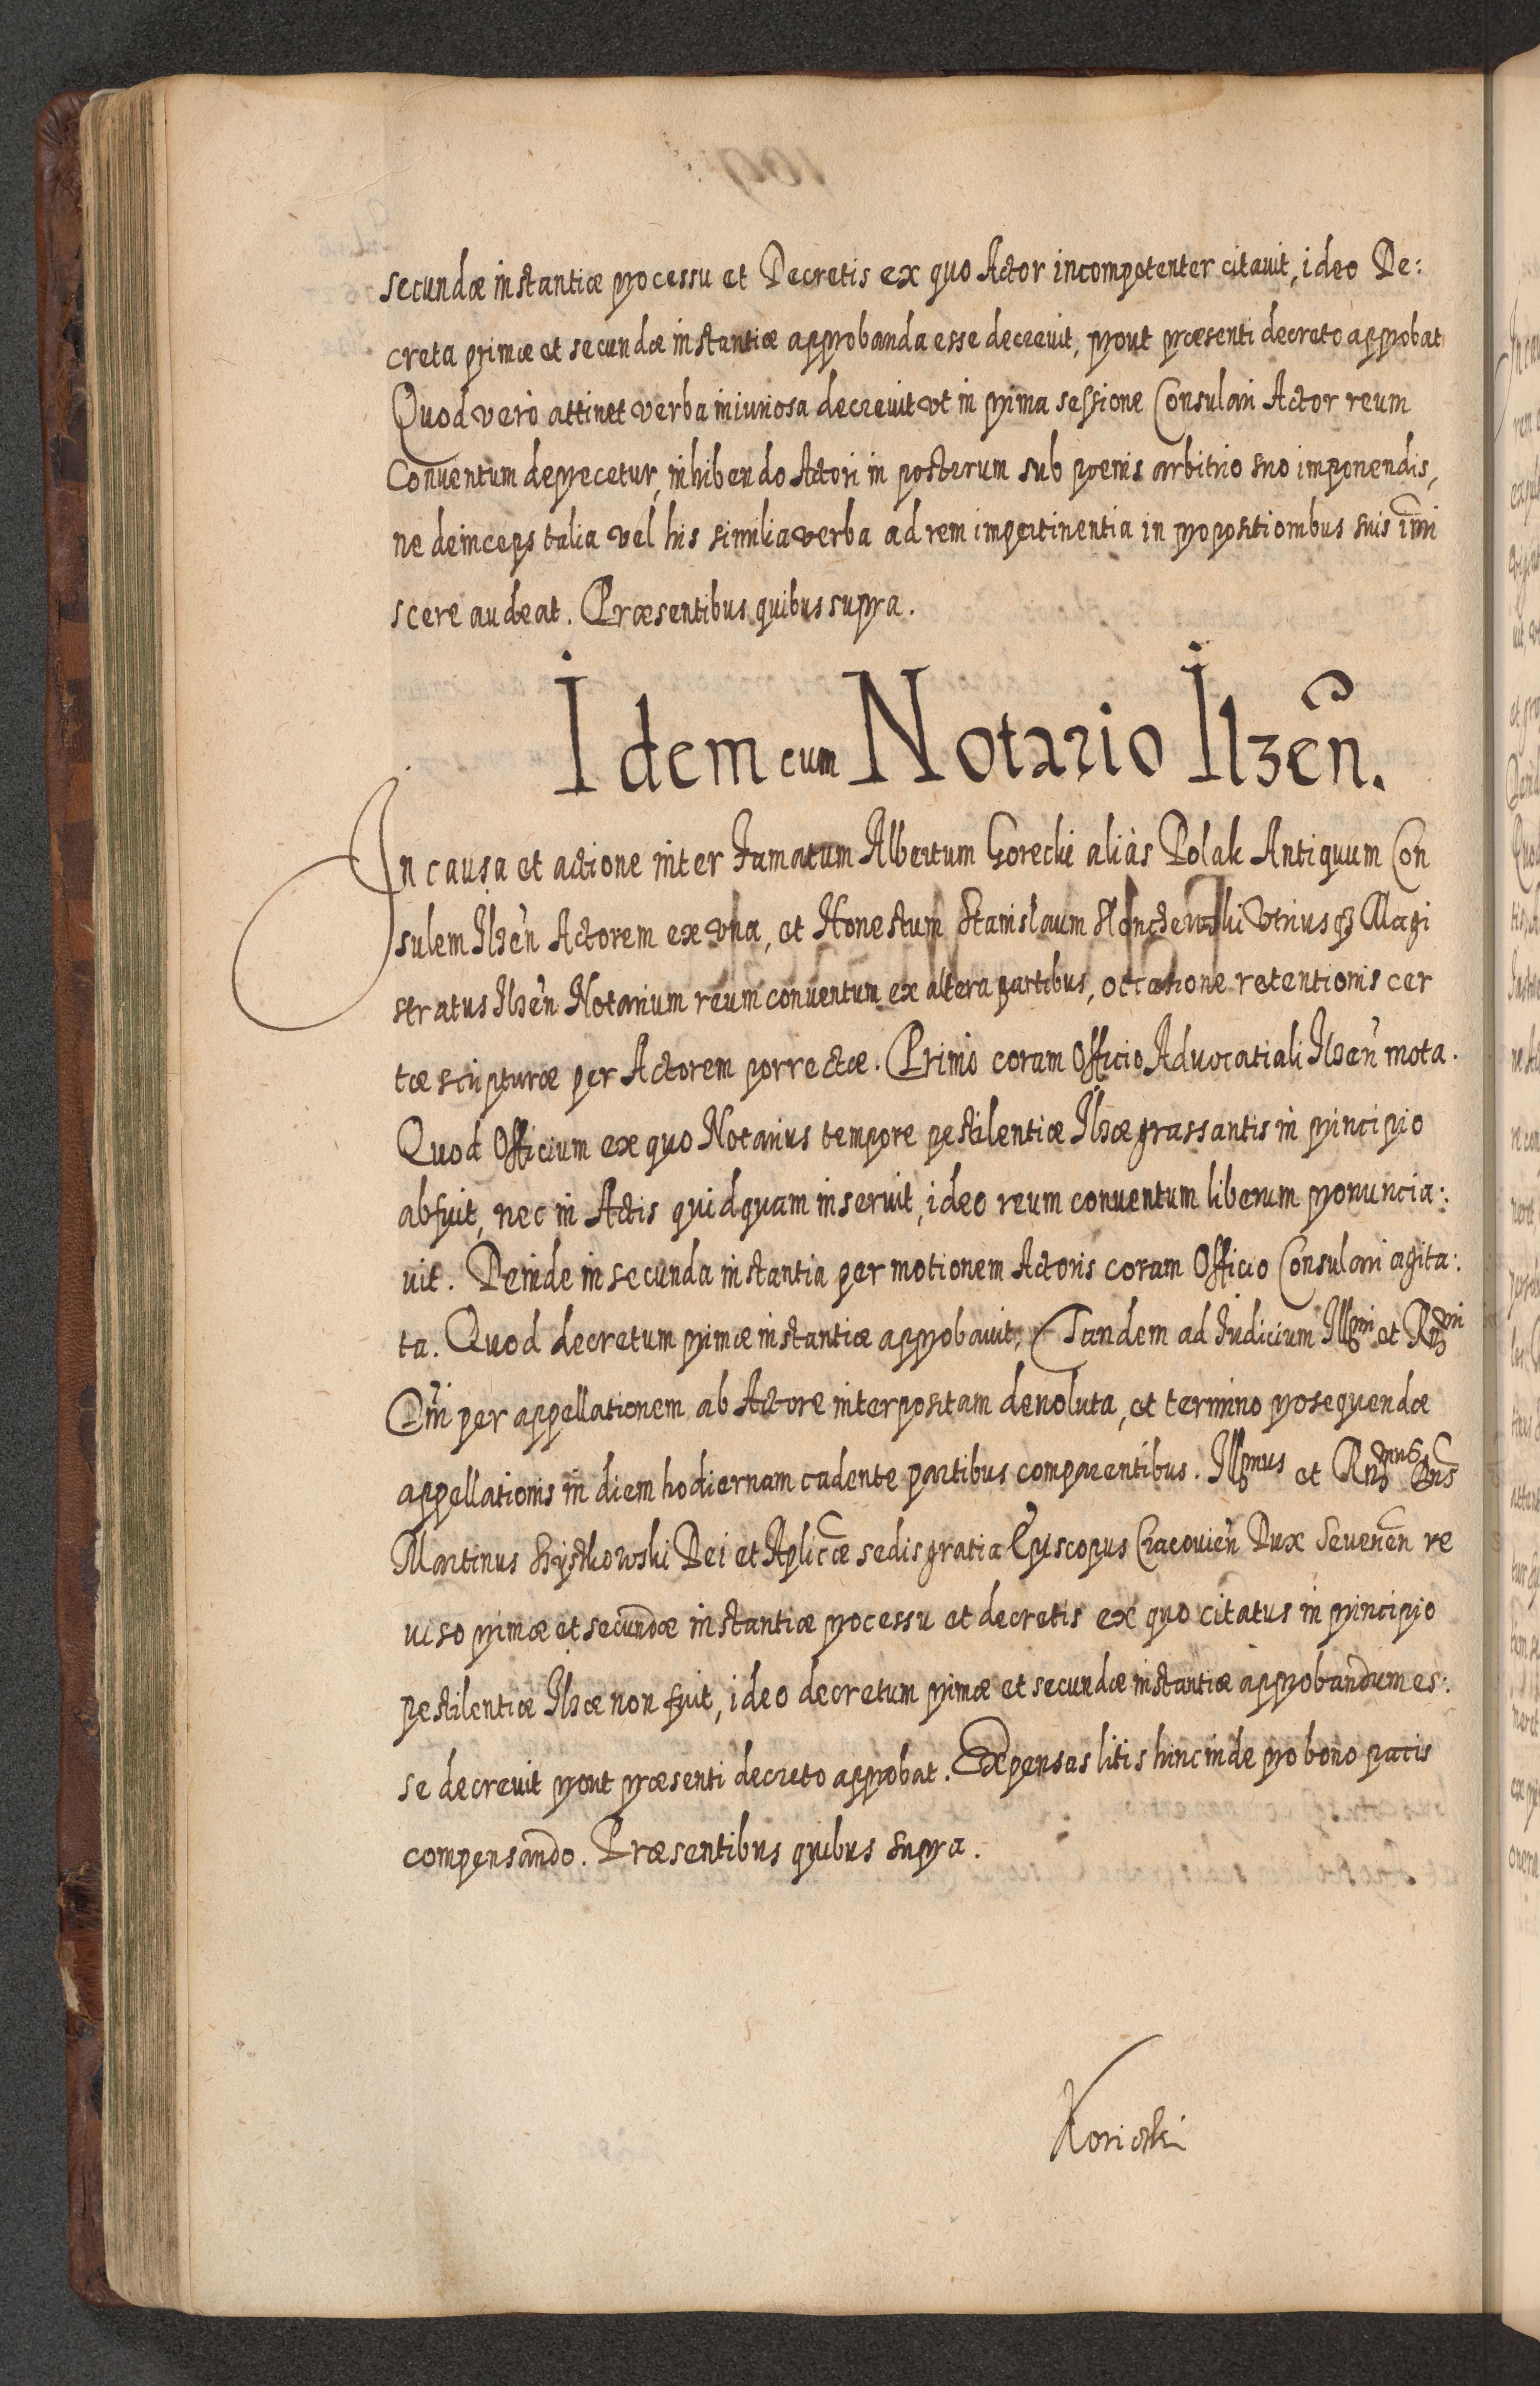 secundæ instantiæ processu et Decretis ex quo Actor incompetenter citauit, ideo De:
creta primæ et secundæ instantiæ approbanda esse decreuit, prout præsenti decreto approbat
Quod vero attinet verba iniuriosa decreuit vt in prima sessione Consulari Actor reum
Conuentum deprecetur, inhibendo Actori in posterum sub poenis arbitrio suo imponendis,
ne deinceps talia vel his similia verba ad rem impertinentia in propositionibus suis im̃i
scere audeat. Præsentibus quibus supra.
Idem cum Notario Ilzen̄.
In causa et actione inter Famatum Albertum Gorecki aliàs Polak Antiquum Con
sulem Ilzen̄ Actorem ex vna, et Honestum Stanislaum Vtriusqꝫ Magi
stratus Ilzen̄ Notarium reum conuentum ex altera partibus, occasione retentionis cer
tæ scripturæ per Actorem porrectæ. Primò coram Officio Aduocatiali Ilzen̄ mota.
Quod Officium ex quo Notarius tempore pestilentiæ Ilzæ grassantis in principio
abfuit, nec in Actis quidquam inseruit, ideo reum conuentum liberum pronuncia:
uit. Deinde in secunda instantia per motionem Actoris coram Officio Consulari agita:
ta. Quod decretum primæ instantiæ approbauit, Tandem ad Iudicium Illmi et Rndmi
Dn̄i per appellationem ab Actore interpositam deuoluta, et termino prosequendæ
appellationis in diem hodiernam cadente partibus comparentibus. Illmus et Rndmus Dn̄s
Martinus Szyszkowski Dei et Aplicæ sedis gratia Episcopus Cracouien̄ Dux Seuerien̄ re
uiso primæ et secundæ instantiæ processu et decretis ex quo citatus in principio
pestilentiæ Ilzæ non fuit, ideo decretum primæ et secundæ instantiæ approbandum es:
se decreuit prout præsenti decreto approbat. Expensas litis hincinde pro bono pacis
compensando. Præsentibus quibus supra.